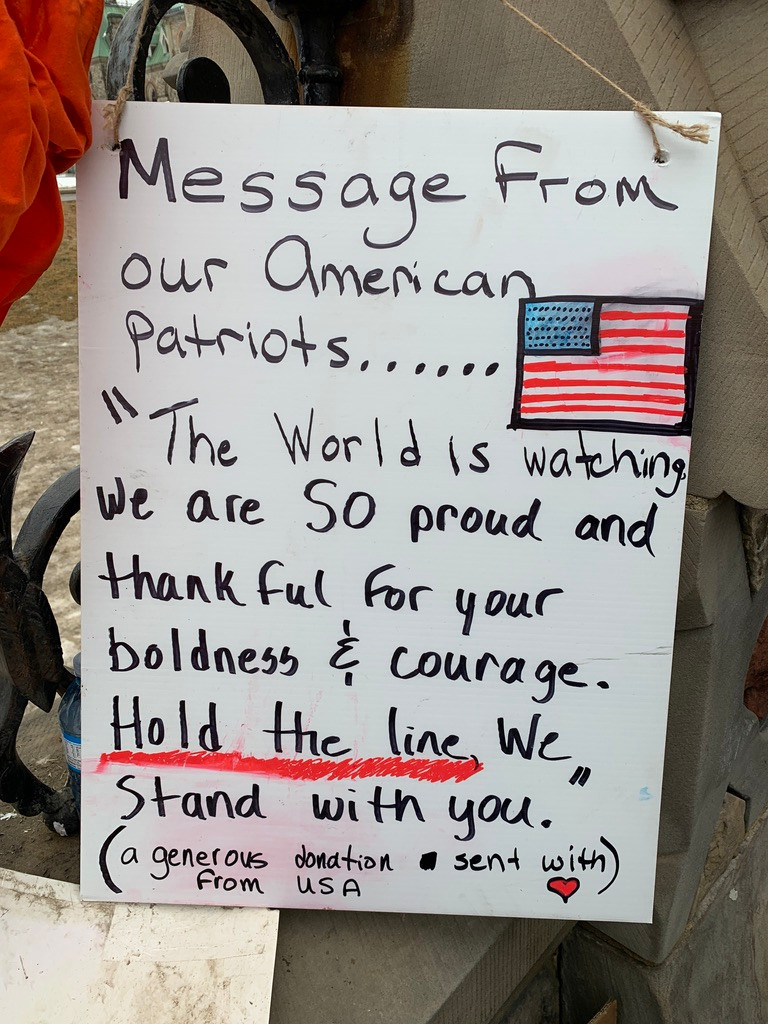 Message From
our American
Patriots......
"The World is watching
We are SO proud and
thankful for your
boldness & courage.
Hold the line, We
Stand with you."
(a generous donation sent with)
From USA